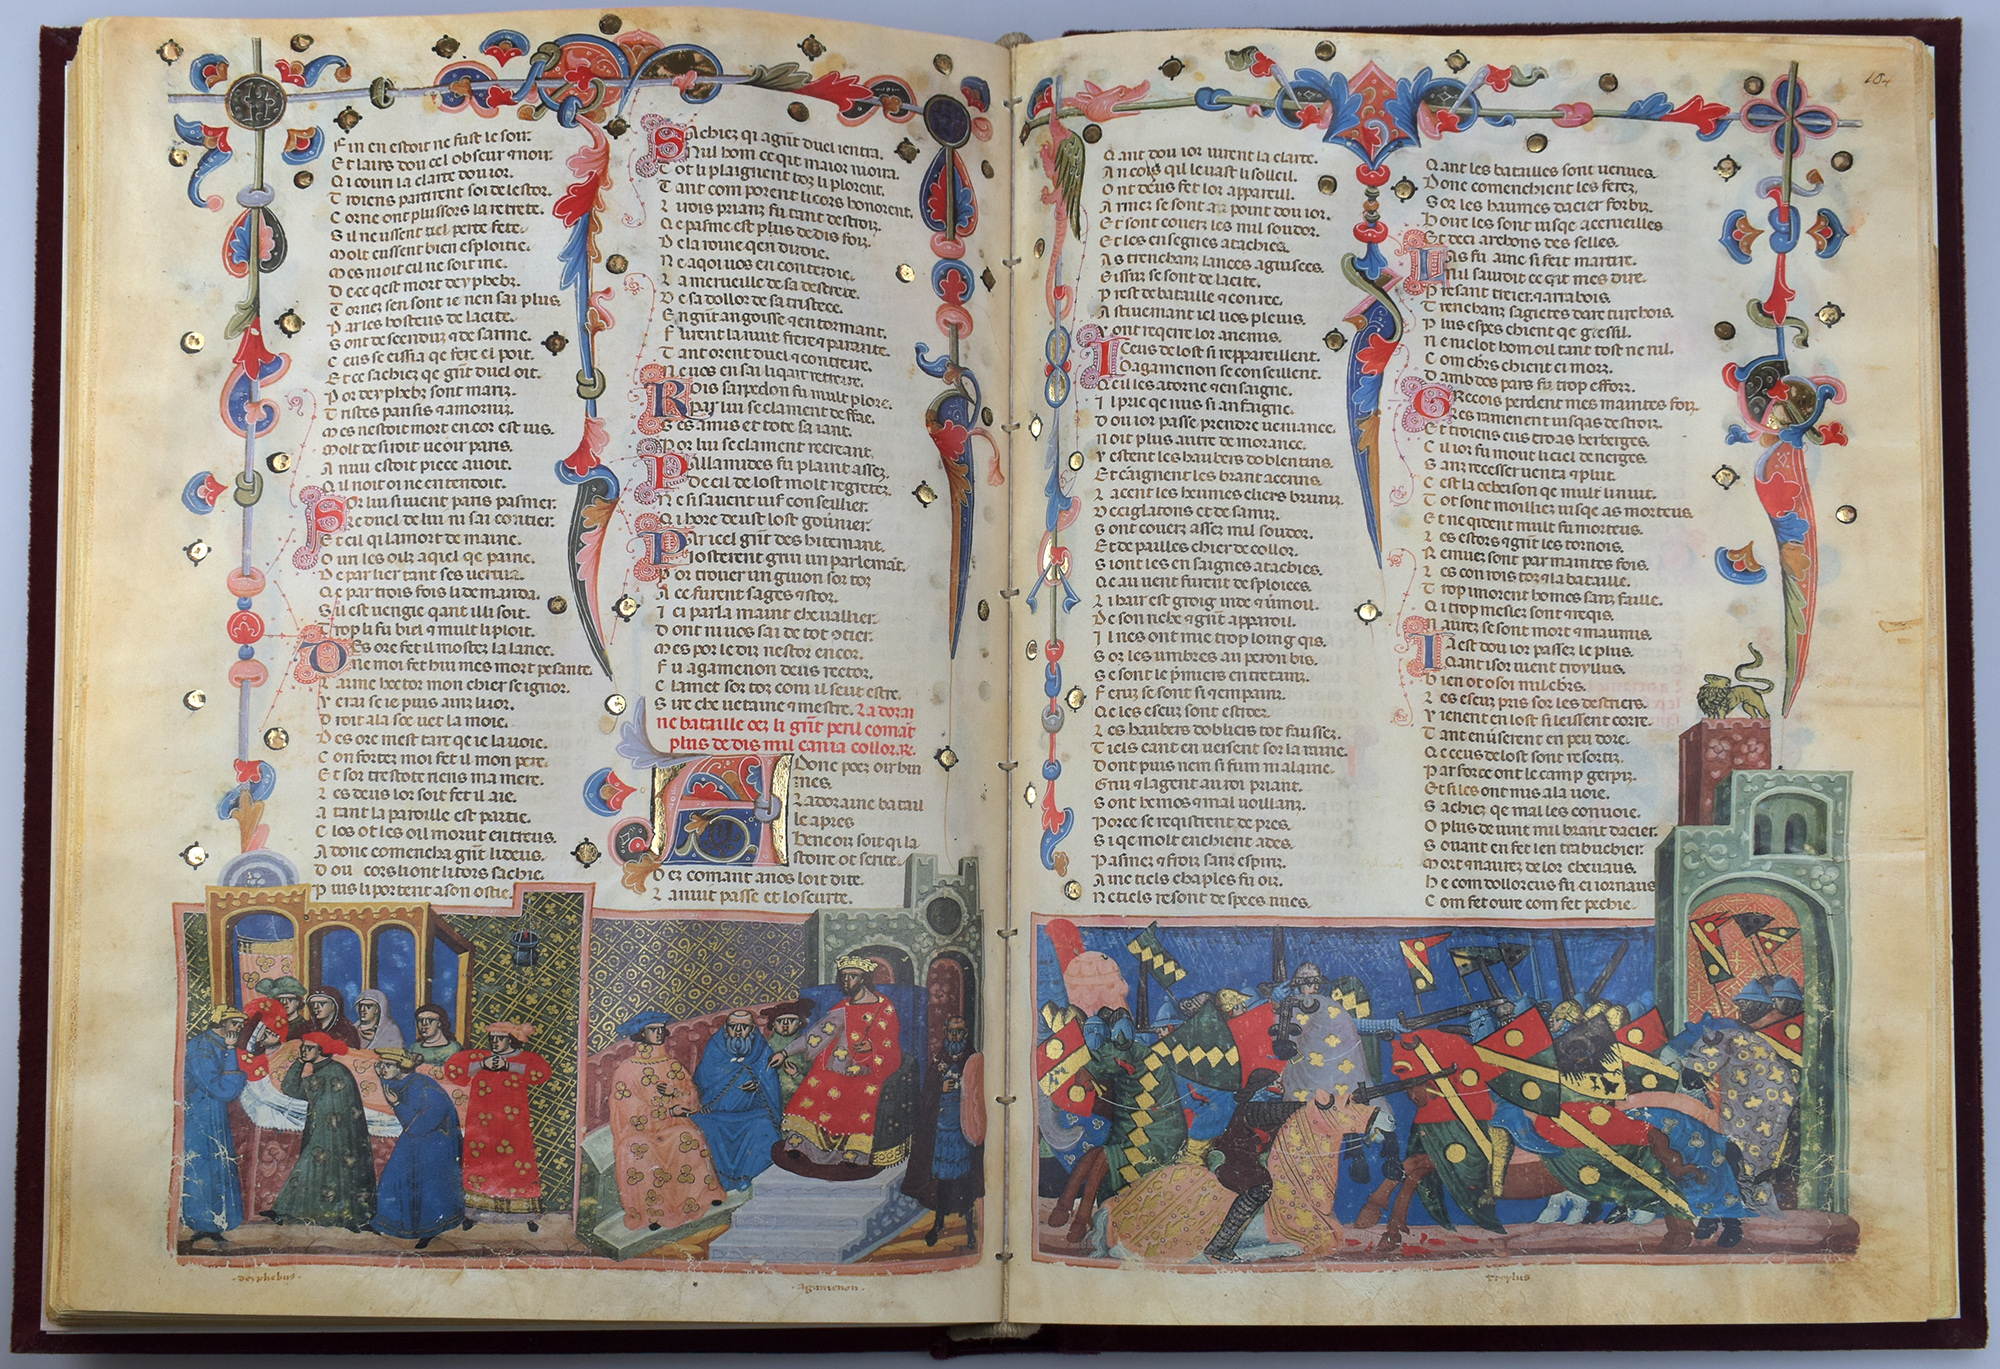 F in en estoit ne fust le soir.
E t lairs dou cel obscur ⁊ noir.
Q i couri la clarte dou ior.
T roiens partirent soi de lestor.
C orne ont plussors la retrete.
S il ne ussent tiel perte fete.
M olt eussent bien esploitie.
M es n i oit eil ne soit irie.
D e ce qest mort deyphebz.
T ornez sen sont ie nen sai plus.
P ar les hosteus de la cite.
S ont descenduz ⁊ de sarme.
C eus se eissi a qe fere ei poit.
E t ce sachiez qe gñt duel oit.
P or deyphebz sont mariz.
T ristes pansis ⁊ amorniz.
M es nestoit mort encor est uis.
M olt desiroit ueoir paris.
A nuu estoit piece auoit.
Q il noit oi ne entendoit.
S or lui siuent paris pasmer.
R e duel de lui ni sai contier.
E t cil qi lamort de maine.
O uri les oilz a qiel qe paine.
D e parlier tant ses vertuz.
Q e par trois fois li demanda.
S il est uengie qant illi soit.
T rop li fu biel ⁊ mult li ploit.
D es ore fet il mostez la lance.
O ne moi fet hui mes mort pesante.
L aime hector mon chier seignor.
V erai se ie puis ainz luior.
D roit a la soe uet la moie.
D es ore mest tart qe ie la uoie.
C onfortez moi fet il mon pere.
E t sor trestote riens ma mere.
L es deus lor soit fet il aie.
A tant la paroille est partie.
C los ot les oil morut entreus.
A donc comencha gñt li deus.
D ou cors li ont li tors sachie.
P uis li portent a son ostie.
S achiez qi agñt duel ientra.
N ul hom ce qit maior moira.
T ot li plaignent toz li plorent.
T ant com porent li cors honorent.
L i rois prianz fu tant destroiz.
Q e pasme est plus de dis foiz.
D e la roine qen diroie.
N e a qoi uos en conteroie.
L a merueille de sa destrece.
D e sa dollor de sa tristece.
E n gñt angoisse ⁊ en tormant.
F urent la nuit frere ⁊ parante.
T ant orent duel ⁊ contreire.
N e uos en sai li qart retreire.
R ois sarpedon fu mult plore.
P ar lui se clament de ffae.
S es amis et tote sa iant.
P or lui se clament recreant.
P allamides fu plaint assez.
D e ceil de lost molt regretez.
N e si sauent iuf conseillier.
Q i hore deust lost goũnier.
P ar icel gñt des hitemant.
I osterent griu un parlemãt.
P or trouer un guion sor toz
A ce furent sages ⁊ stor.
I ci parla maint chevalhier.
D ont ni uos sai de tot ⁊tier.
M es por le diz nestor encor.
F u agamenon deus rector.
C lamet sor toz com il seut estre.
S ire cheuetaine ⁊ mestre. La dorai
ne bataille oez li gñt peril comãt
plus de dis mil canla collor.R.
A Donc poez oir bin
mes.
La doraine batail
le apres
bencoit soit qi la
stoire ot scrite.
O ez comant anos loit dite.
L a nuit passe et loscurte.
· deyphebus ·
· agamenon ·
104
Q ant dou ior uirent la clarte.
A ncois qil leuast li solleil.
O nt deus fet lor appareill.
A rmez se sont au point dou ior.
E t sont couerz les mil soudor.
E t les enseignes atachies.
A s trenchanz lances aguisees.
E issuz se sont de la cite.
P rest de bataille ⁊ conree.
A stiuemant iel uos pleuis.
V ont reqerre lor anemis.
I ceus de lost si reppareillent.
D agamenon se conseillent.
Q eil les atorne ⁊ enseigne.
I l prie qe nus si anfaigne.
D ou ior passe prendre ueniance.
N oit plus autre demorance.
V estent les haubers doblentins.
E t ceaignent les brant acerins.
L acent les heumes cliers brunz.
D e ciglatons et de samiz.
S ont couerz assez mil soudor.
E t de pailles chier de collor.
S i ont les enseignes atachies.
Q e au uent furent desploiees.
L i hair est groig inde ⁊ ũmoil.
D e son riche ⁊ gñt apparoil.
I l nes ont mie trop loing qis.
S or les umbres au peron bis.
S e sont le pmiers entretanz.
F eruz se sont si ⁊ empainz.
Q e les escuz sont estroez.
L es haubers dobliers tot faussez.
T iels cant en ueisent sor la raine.
D ont puis nen si fum ni alaine.
G riu qi la gent au roi priant.
S ont hemos ⁊ mal uoillanz.
P orce se reqistrent de pres.
S i qe molt enchient ades.
P asmez ⁊ froiz sanz espiriz.
A inc tiels chaples fu oiz.
N e tiels resont de spees nues.
Q ant les batailles sont uenues.
D onc comenchient les ferez.
S or les haumes dacier forbiz.
D oire les sont iusqe as ceruelles
E t deci as arcons des selles.
L as fu ainc si feit martire.
N ul sauroit ce qit mes dire.
P resant treier ⁊ arrabois.
T renchanz sagietes dare turchois.
P lus espes chient qe gressil.
N en uelot hom oil tant tost ne nil.
C om chrs chient ei morz.
D ambdes pars fu trop efforz.
G recois perdent mes maintes foiz.
R es ramenent iusqas destroiz.
E t troiens eus troas herberges.
C il ior fu mout li ciel de nerges.
S anz recesser uenta ⁊ pluit.
C est la cheison qe mult li nuit.
T ot sont moilliez iusqe as morteus.
E t ne qident mult fu morteus.
L es estors ⁊ gñt les tornois.
R emuez sont par maintes fois.
L es conrois toz ⁊ la bataille.
T rop i morent homes sanz faille.
Q i trop meslez sont ⁊ reqis.
N aurez se sont mort ⁊ maumis.
I a est dou ior passez le plus.
Q ant isor uient troyllus.
b ien ot o soi mil chrs.
L es escuz pris sor les destriers.
V ienent en lost si leissent corre.
T ant en ũserent en peu dore.
Q e ceus de lost sont resortiz.
P ar force ont le camp gerpiz.
E t si les ont mis a la uoie.
S achiez qe mal les conuoie.
O plus de uint mil brant dacier.
S ouant en fet len trabuchier.
M ort ⁊ naurez de lor cheuaus.
h e com dolloreus fu ci iornaus
C om fet oure com fet pechie.
troylus